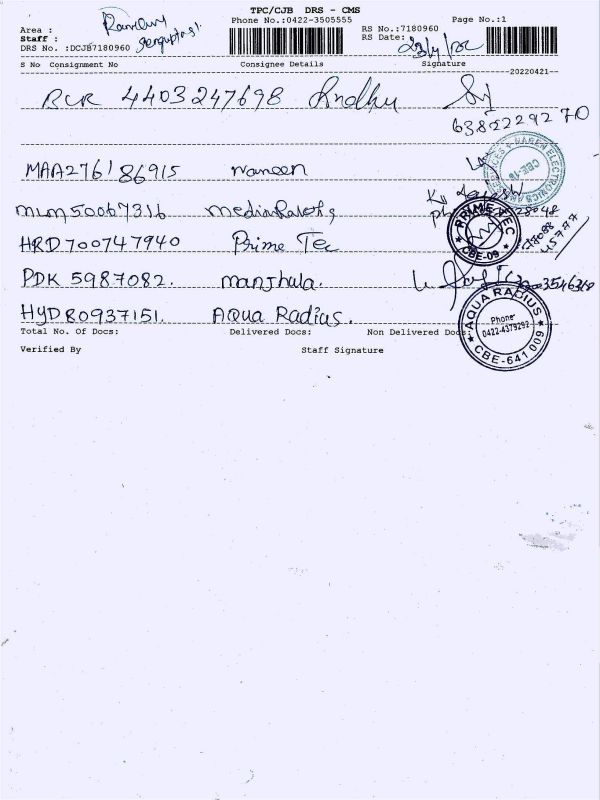 TPC/CJB DRS - CMS
Area :
Phone No.:0422-3505555
Page No.:1
Staff :
RS No.:7180960
DRS No. :DCJB7180960
RS Date:
S No Consignment No Consignee Details Signature
20220421
4403247698
63852229270
MAA276186915 naneen
NAREN ELECTRONICS
CBE-18
MUM50067316
HRD700747940 Prime Tec
PRIME TEC
CBE-09
PDK 5987082. manjhula.
HYD80937151. AQua Radius.
AQUA RADIUS
Phone:
0422-4379292
CBE-641 009
Total No. Of Docs: Delivered Docs: Non Delivered Docs:
Verified By Staff Signature